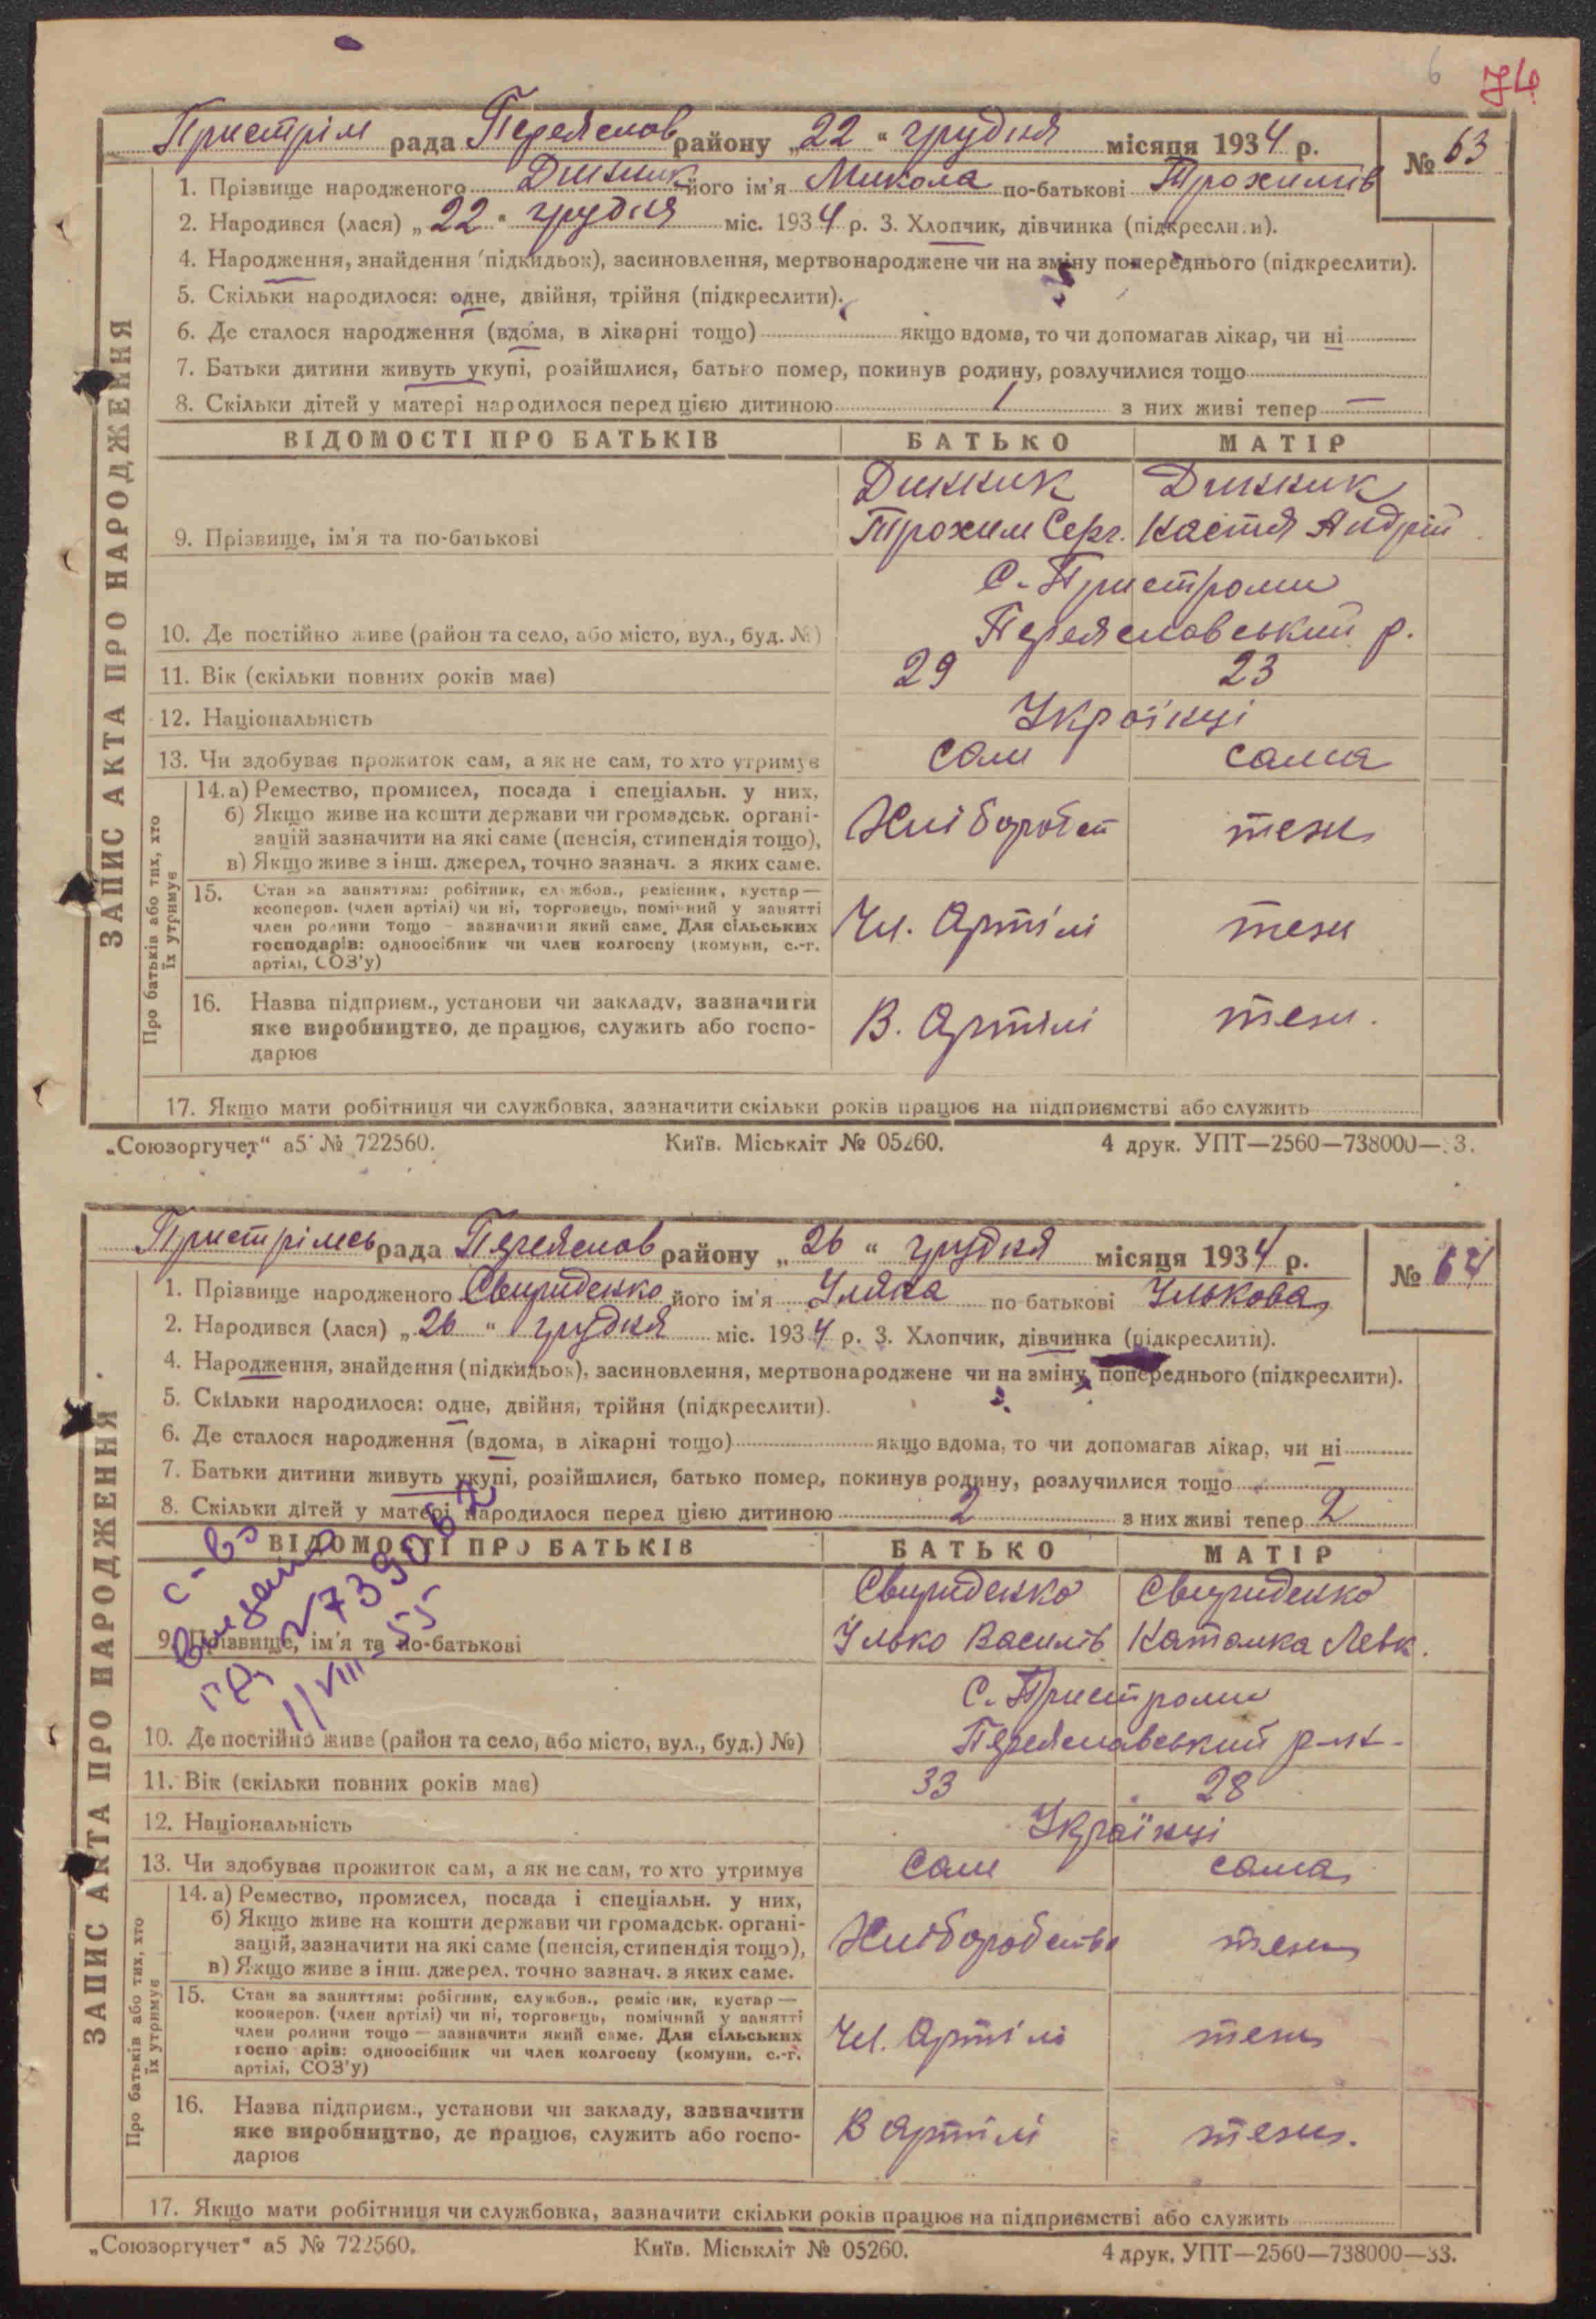 6 74
Пристрім рада Переяслав району „22“ грудня місяця 1934 р.
№ 63
1. Прізвище народженого Динник його ім'я Микола по-батькові Трохимів
2. Народився (лася) „22“ грудня міс. 1934 р. 3. Хлопчик, дівчинка (підкреслити).
4. Народження, знайдення (підкидьок), засиновлення, мертвонароджене чи на зміну попереднього (підкреслити).
5. Скільки народилося: одне, двійня, трійня (підкреслити).
6. Де сталося народження (вдома, в лікарні тощо) якщо вдома, то чи допомагав лікар, чи ні
7. Батьки дитини живуть укупі, розійшлися, батько помер, покинув родину, розлучилися тощо
8. Скільки дітей у матері народилося перед цією дитиною 1 з них живі тепер —
ВІДОМОСТІ ПРО БАТЬКІВ БАТЬКО МАТІР
Динник Динник
9. Прізвище, ім'я та по-батькові Трохим Серг. Настя Андрій
с. Пристроми
10. Де постійно живе (район та село, або місто, вул., буд. №) Переяславський р.
11. Вік (скільки повних років має) 29 23
12. Національність Українці
13. Чи здобуває прожиток сам, а як не сам, то хто утримує сам сама
14. а) Ремество, промисел, посада і спеціальн. у них,
б) Якщо живе на кошти держави чи громадськ. органі-
зацій зазначити на які саме (пенсія, стипендія тощо),
в) Якщо живе з інш. джерел, точно зазнач. з яких саме.
Хліборобст теж
15. Стан за заняттям: робітник, службов., ремісник, кустар —
кооперов. (член артілі) чи ні, торговець, помічний у занятті
член родини тощо — зазначити який саме. Для сільських
господарів: одноосібник чи член колгоспу (комуни, с.-г.
артілі, СОЗ'у)
Чл. Артілі теж
16. Назва підприєм., установи чи закладу, зазначити
яке виробництво, де працює, служить або госпо-
дарює
В. Артілі теж.
17. Якщо мати робітниця чи службовка, зазначити скільки років працює на підприємстві або служить
Про батьків або тих, хто
їх утримує
ЗАПИС АКТА ПРО НАРОДЖЕННЯ
„Союзоргучет“ а5 № 722560. Київ. Міськліт № 05260. 4 друк. УПТ—2560—738000—33.
Пристрімсь рада Переяслав району „26“ грудня місяця 1934 р.
№ 64
1. Прізвище народженого Свириденко його ім'я Уляна по батькові Ількова
2. Народився (лася) „26“ грудня міс. 1934 р. 3. Хлопчик, дівчинка (підкреслити).
4. Народження, знайдення (підкидьок), засиновлення, мертвонароджене чи на зміну попереднього (підкреслити).
5. Скільки народилося: одне, двійня, трійня (підкреслити).
6. Де сталося народження (вдома, в лікарні тощо) якщо вдома, то чи допомагав лікар, чи ні
7. Батьки дитини живуть укупі, розійшлися, батько помер, покинув родину, розлучилися тощо
8. Скільки дітей у матері народилося перед цією дитиною 2 з них живі тепер 2
ВІДОМОСТІ ПРО БАТЬКІВ БАТЬКО МАТІР
с-во
11/VIII-55
Свириденко Свириденко
9. Прізвище, ім'я та по-батькові Ілько Василів Наталка Левк.
с. Пристроми
10. Де постійно живе (район та село, або місто, вул., буд.) №) Переяславський р-н
11. Вік (скільки повних років має) 33 28
12. Національність Українці
13. Чи здобуває прожиток сам, а як не сам, то хто утримує сам сама
14. а) Ремество, промисел, посада і спеціальн. у них,
б) Якщо живе на кошти держави чи громадськ. органі-
зацій, зазначити на які саме (пенсія, стипендія тощо),
в) Якщо живе з інш. джерел. точно зазнач. з яких саме.
Хліборобство теж
15. Стан за заняттям: робітник, службов., ремісник, кустар —
кооперов. (член артілі) чи ні, торговець, помічний у занятті
член родини тощо — зазначити який саме. Для сільських
господарів: одноосібник чи член колгоспу (комуни, с.-г.
артілі, СОЗ'у)
Чл. Артілі теж
16. Назва підприєм., установи чи закладу, зазначити
яке виробництво, де працює, служить або госпо-
дарює
В Артілі теж.
17. Якщо мати робітниця чи службовка, зазначити скільки років працює на підприємстві або служить
Про батьків або тих, хто
їх утримує
ЗАПИС АКТА ПРО НАРОДЖЕННЯ
„Союзоргучет“ а5 № 722560. Київ. Міськліт № 05260. 4 друк. УПТ—2560—738000—33.